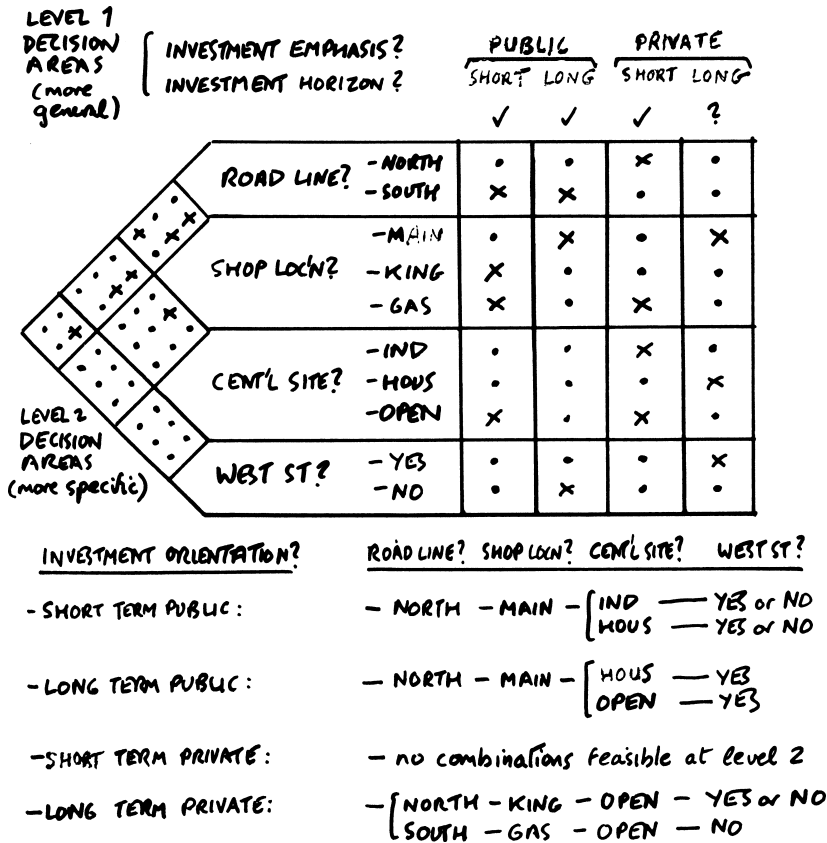 LEVEL 1
DECISION
AREAS
(more
general)
INVESTMENT EMPHASIS?
INVESTMENT HORIZON?
PUBLIC PRIVATE
SHORT LONG SHORT LONG
✓ ✓ ✓ ?
ROAD LINE? -NORTH • • × •
-SOUTH × × • •
SHOP LOC'N? -MAIN • × • ×
-KING × • • •
-GAS × • × •
CENT'L SITE? -IND • • × •
-HOUS • • • ×
-OPEN × • × •
WEST ST? -YES • • • ×
-NO • × • •
LEVEL 2
DECISION
AREAS
(more specific)
INVESTMENT ORIENTATION? ROAD LINE? SHOP LOCN? CENT'L SITE? WEST ST?
- SHORT TERM PUBLIC: - NORTH - MAIN - IND — YES or NO
HOUS — YES or NO
- LONG TERM PUBLIC: - NORTH - MAIN - HOUS — YES
OPEN — YES
- SHORT TERM PRIVATE: - no combinations feasible at level 2
- LONG TERM PRIVATE: - NORTH - KING - OPEN - YES or NO
SOUTH - GAS - OPEN - NO